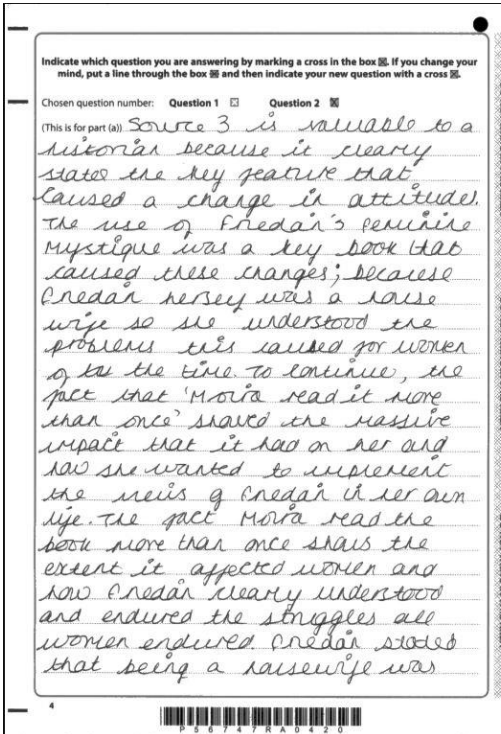 Indicate which question you are answering by marking a cross in the box ☒. If you change your
mind, put a line through the box ☒ and then indicate your new question with a cross ☒.
Chosen question number: Question 1 ☒ Question 2 ☒
(This is for part (a)) Source 3 is valuable to a
historian because it clearly
states the key feature that
caused a change in attitudes.
The use of Friedan's Feminine
Mystique was a key book that
caused these changes; because
Friedan herself was a house
wife so she understood the
problems this caused for women
of the time. To continue, the
fact that 'Moira read it more
than once' showed the massive
impact that it had on her and
how she wanted to implement
the views of Friedan in her own
life. The fact Moira read the
book more than once shows the
extent it affected women and
how Friedan clearly understood
and endured the struggles all
women endured. Friedan stated
that being a housewife was
4
P56747RA0420